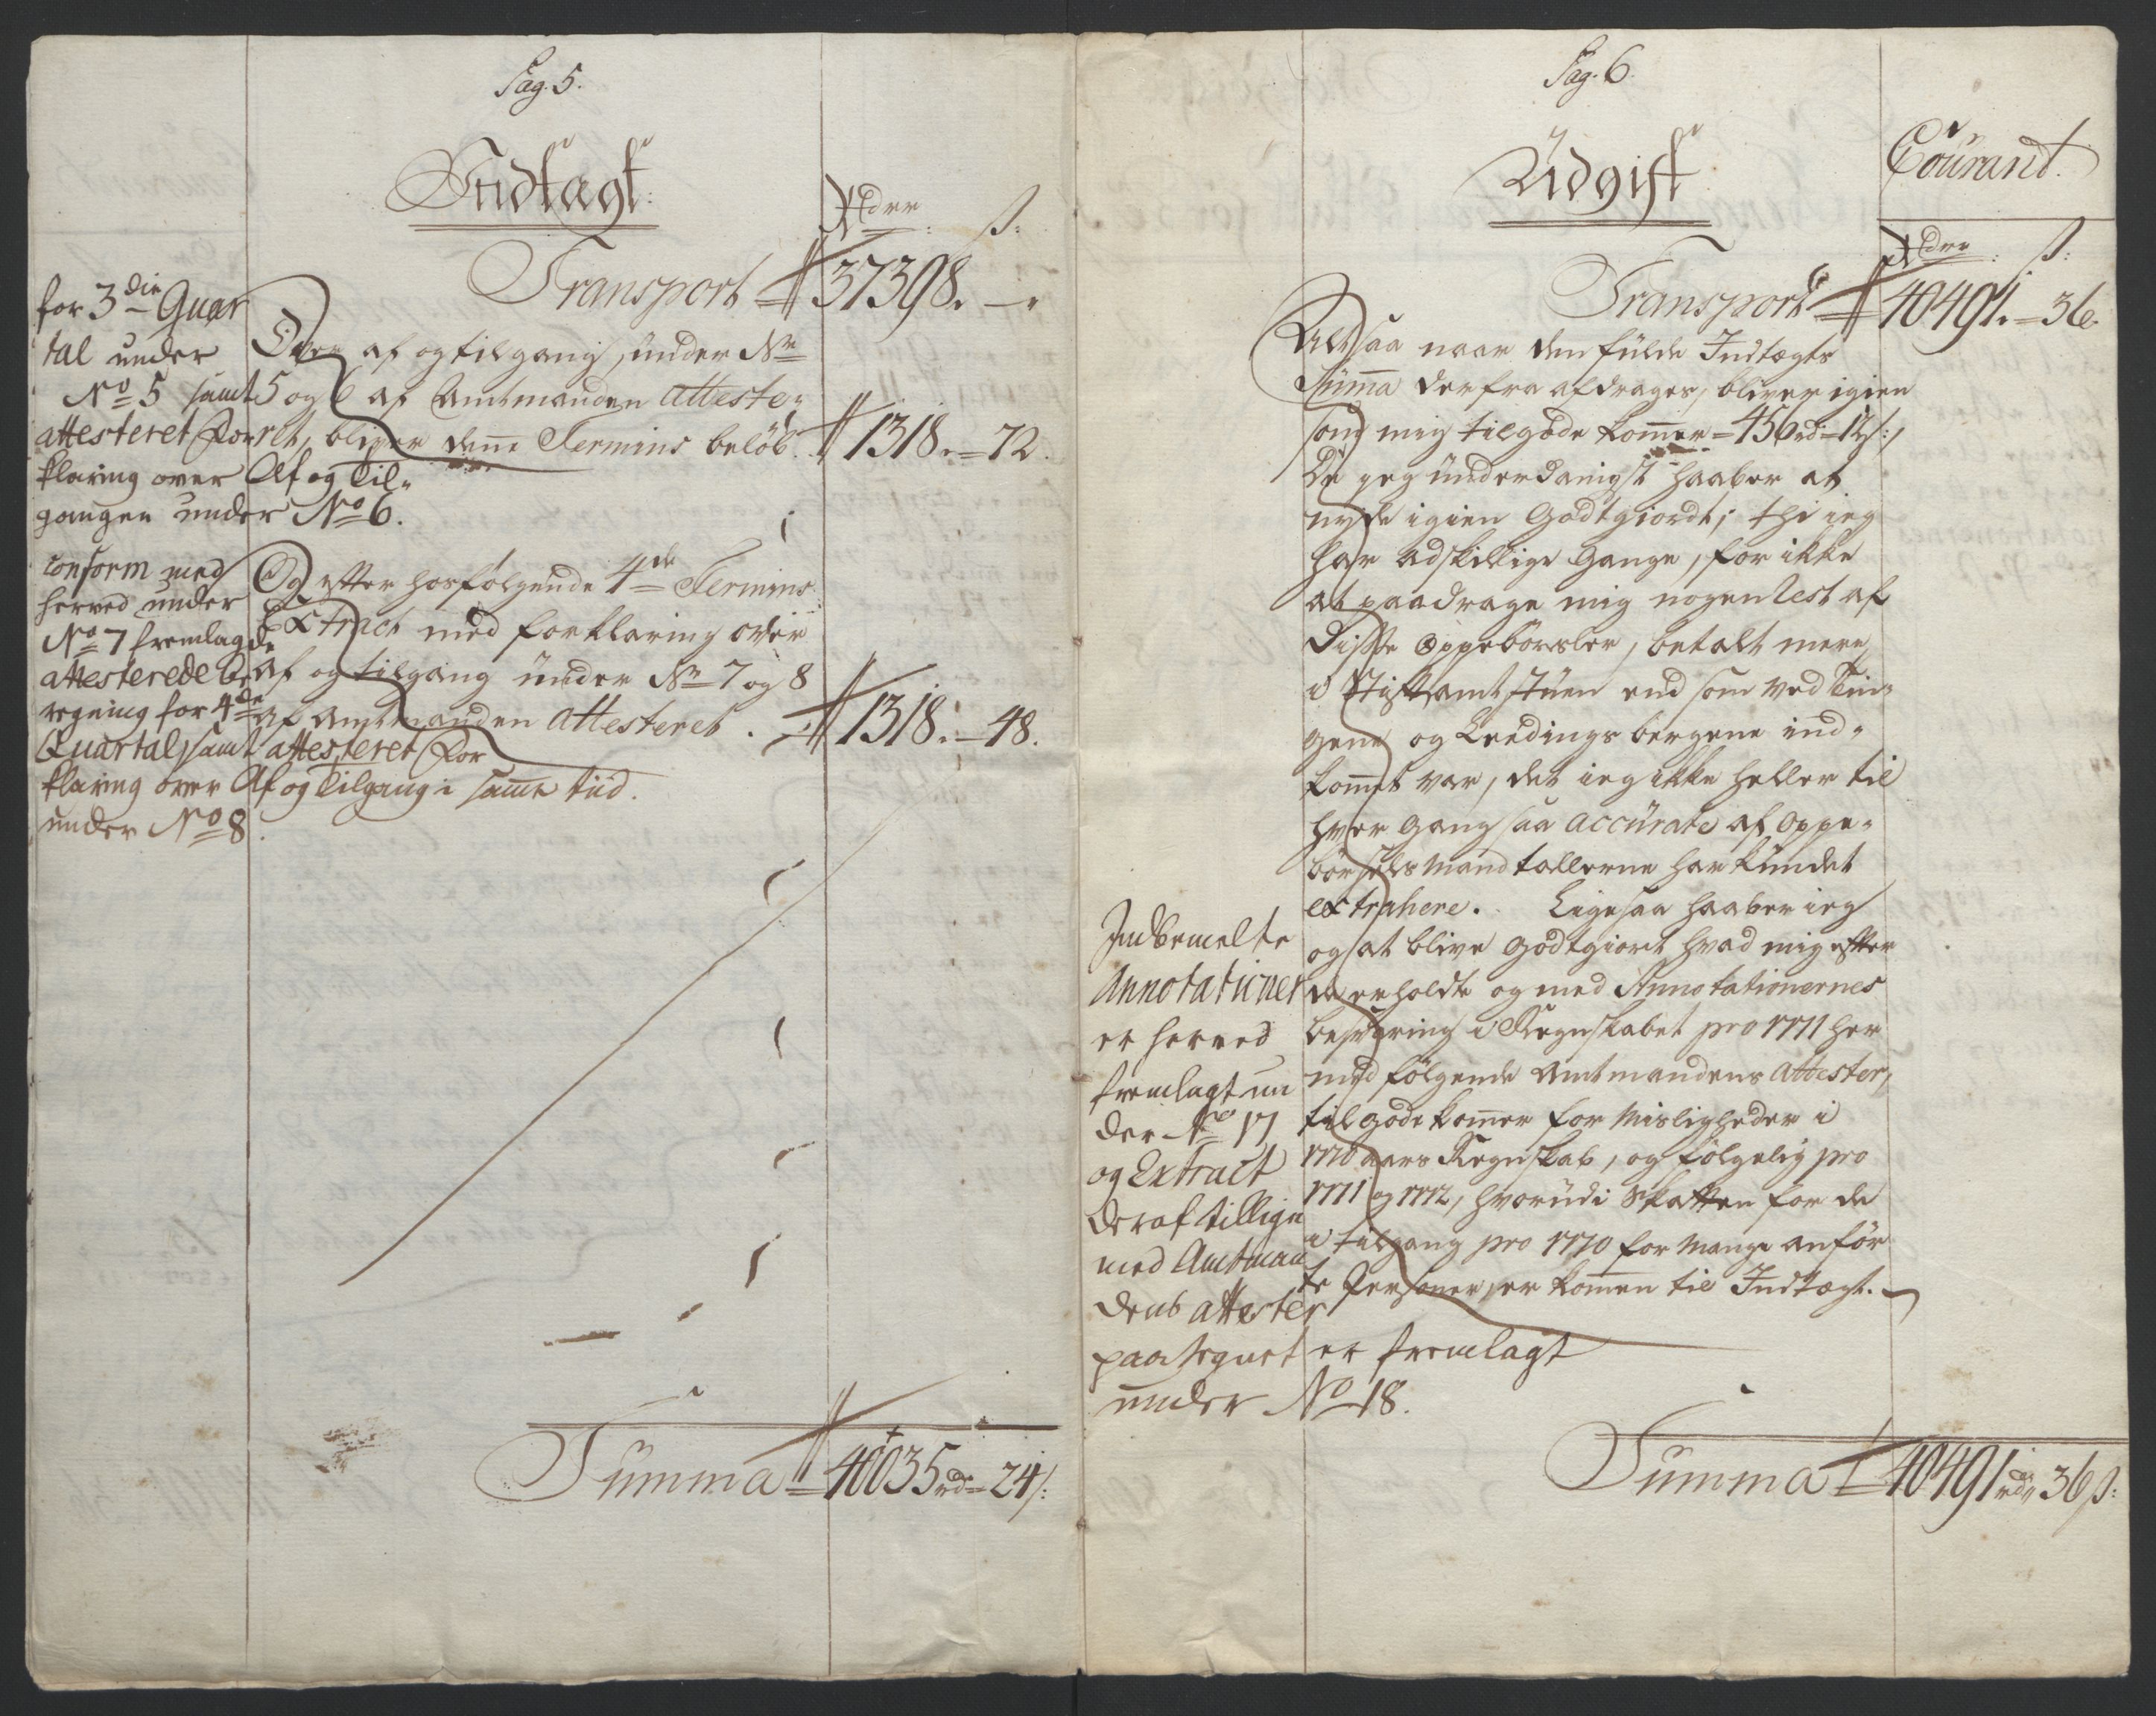 Pag. 5.
Indtægt:
Rdr ß:
Transport 37398. —.
for 3die Quar
tal under
No 5 samt
attesteret For
klaring over Af og Til-
gangen under No 6.
Over af og tilgang, under Nr
5 og 6 af Amtmanden atteste-
ret, bliver denne Termins beløb 1318. 72.
conform med
herved under
No 7 fremlagde
attesterede be
regning for 4de
Quartal, samt attesteret For
klaring over Af og Tilgang i samme tiid.
under No 8.
Og efter hosfølgende 4de Termins
Extract med forklaring over
af og tilgang under Nr 7 og 8
af Amtmanden attesteret. 1318. 48.
Summa 40035 rd 24 ß:
Pag. 6.
Udgift
Courant.
Rdr ß:
Transport 40491. 36.
Altsaa naar den fulde Indtægts
Summa derfra afdrages, bliver igien
som mig tilgode kommer 456 rd 12 ß:,
De jeg underdanigst haaber at
nyde igien Godtgiordt; thi ieg
har adskillige Gange, for ikke
at paadrage mig nogen lest af
disse Oppebørsler, betalt mere
i Stiftamtstuen end som ved Tin-
gene og Leedingsbergene ind-
kommet var, det ieg ikke heller til
hver Gang saa accurate af Oppe-
børsels Mandtallerne har kundet
extrahere. Ligesaa haaber ieg
og at blive Godtgiort hvad mig efter
de erholdte og med Annotationernes
besvaring i Regnskabet pro 1771 her
med følgende Amtmandens attester,
tilgode kommer for Misligheder i
1770 aars Regnskab, og følgelig pro
1771 og 1772, hvorudi Skatten for de
i tilgang pro 1770 for Mange anför
te Personer, er kommen til Indtægt.
Indbemelte
Annotationer
er herved
fremlagt un
der No 17
og Extract
deraf tillige
med Amtman
dens attester
paategnet er fremlagt
under No 18.
Summa 40491 rd 36 ß: